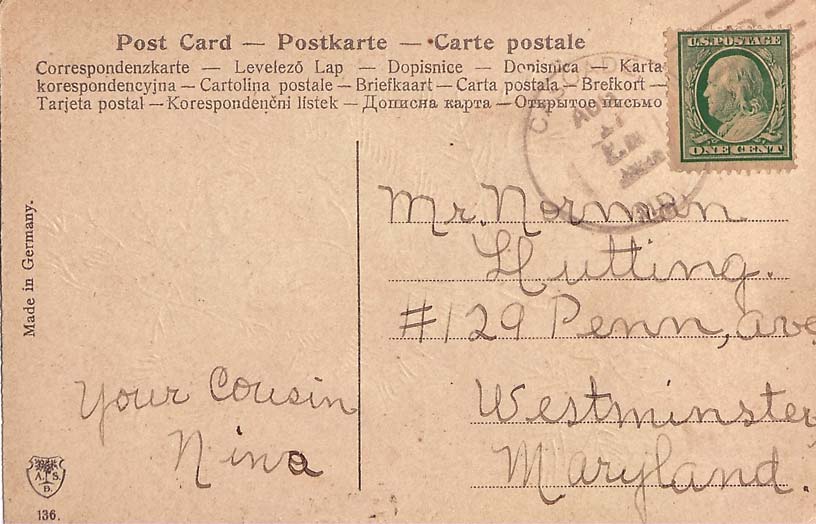 Post Card — Postkarte — Carte postale
Correspondenzkarte — Levelező Lap — Dopisnice — Dopisnica — Karta
korespondencyjna — Cartolina postale — Briefkaart — Carta postala — Brefkort —
Tarjeta postal — Korespondenční listek — Дописна карта — Открытое письмо
U.S. POSTAGE
ONE CENT
AUG
Made in Germany.
Mr. Norman
Hutting.
#129 Penn, ave
Westminster
Maryland.
Your Cousin
Nina
A. S.
B.
136.